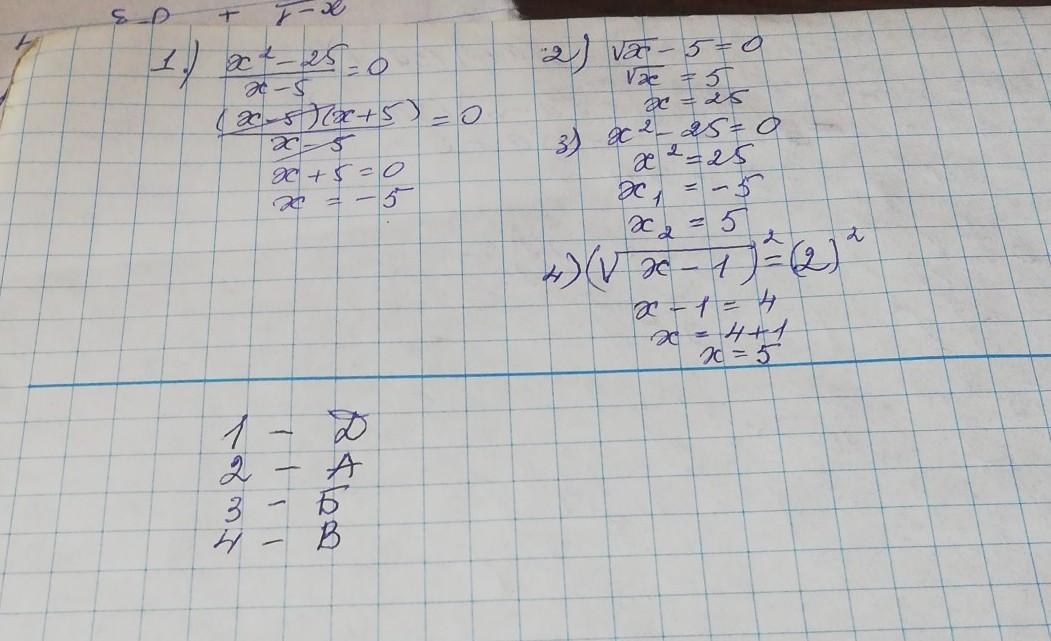 1.) x² - 25 / x - 5 = 0
(x - 5)(x + 5) / x - 5 = 0
x + 5 = 0
x = -5
2) √x - 5 = 0
√x = 5
x = 25
3) x² - 25 = 0
x² = 25
x₁ = -5
x₂ = 5
4) (√x - 1)² = (2)²
x - 1 = 4
x = 4 + 1
x = 5
1 - Д
2 - А
3 - Б
4 - В